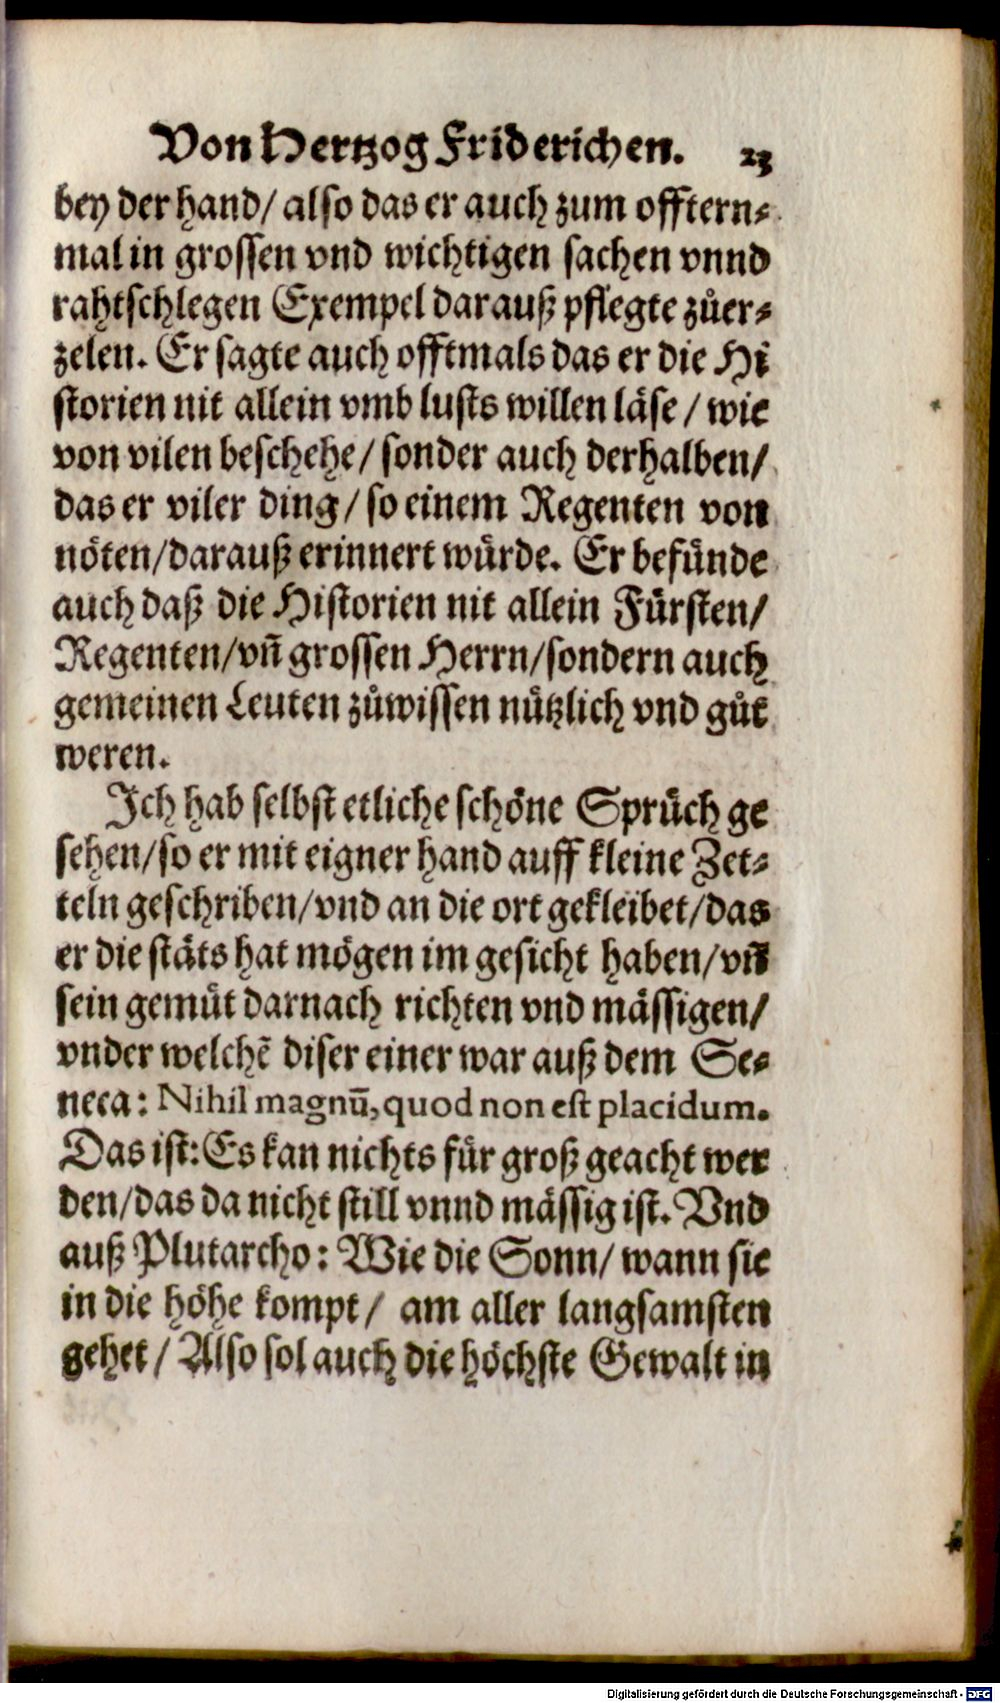 Von Hertzog Friderichen. 23
bey der hand/ also das er auch zum offtern⸗
mal in grossen vnd wichtigen sachen vnnd
rahtschlegen Exempel darauß pflegte zůer⸗
zelen. Er sagte auch offtmals das er die Hi
storien nit allein vmb lusts willen läse / wie
von vilen beschehe/ sonder auch derhalben/
das er viler ding/ so einem Regenten von
nöten/darauß erinnert würde. Er befünde
auch daß die Historien nit allein Fürsten/
Regenten/vñ grossen Herrn/sondern auch
gemeinen Leuten zůwissen nützlich vnd gůt
weren.
Ich hab selbst etliche schöne Sprüch ge
sehen/so er mit eigner hand auff kleine Zet⸗
teln geschriben/vnd an die ort gekleibet/das
er die stäts hat mögen im gesicht haben/vñ
sein gemüt darnach richten vnd mässigen/
vnder welchẽ diser einer war auß dem Se⸗
neca: Nihil magnũ, quod non est placidum.
Das ist: Es kan nichts für groß geacht wer
den/das da nicht still vnnd mässig ist. Vnd
auß Plutarcho: Wie die Sonn/ wann sie
in die höhe kompt/ am aller langsamsten
gehet/ Also sol auch die höchste Gewalt in
Digitalisierung gefördert durch die Deutsche Forschungsgemeinschaft - DFG